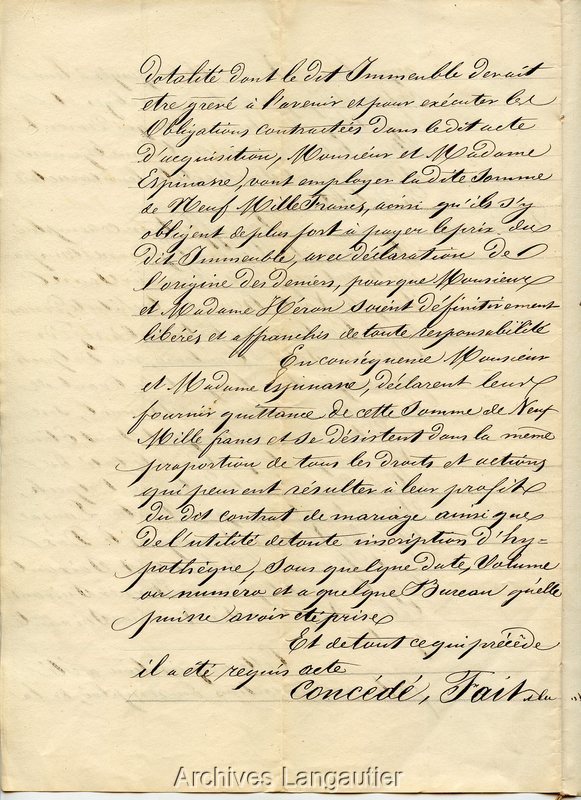 dotalité dont le dit Immeuble devait
etre grevé à l'avenir et pour exécuter les
Obligations contractées dans le dit acte
d'acquisition, Monsieur et Madame
Espinasse, vont employer la dite Somme
de Neuf Mille Francs, ainsi qu'ils s'y
obligent de plus fort à payer le prix du
dit Immeuble, avec déclaration de
l'origine des deniers, pour que Monsieur
et Madame Héron soient définitivement
libérés et affranchis de toute responsabilité
En conséquence Monsieur
et Madame Espinasse, déclarent leur
fournir quittance de cette Somme de Neuf
Mille francs et se désistent dans la même
proportion de tous les droits et actions
qui peuvent résulter à leur profit
du dit contrat de mariage ainsi que
de l'utilité de toute inscription d'hy-
pothèque, sous quelque date, Volume
ou numéro et a quelque Bureau qu'elle
puisse avoir été prise
Et de tout ce qui précède
il a été requis acte
Concédé, Fait et lu
Archives Langautier